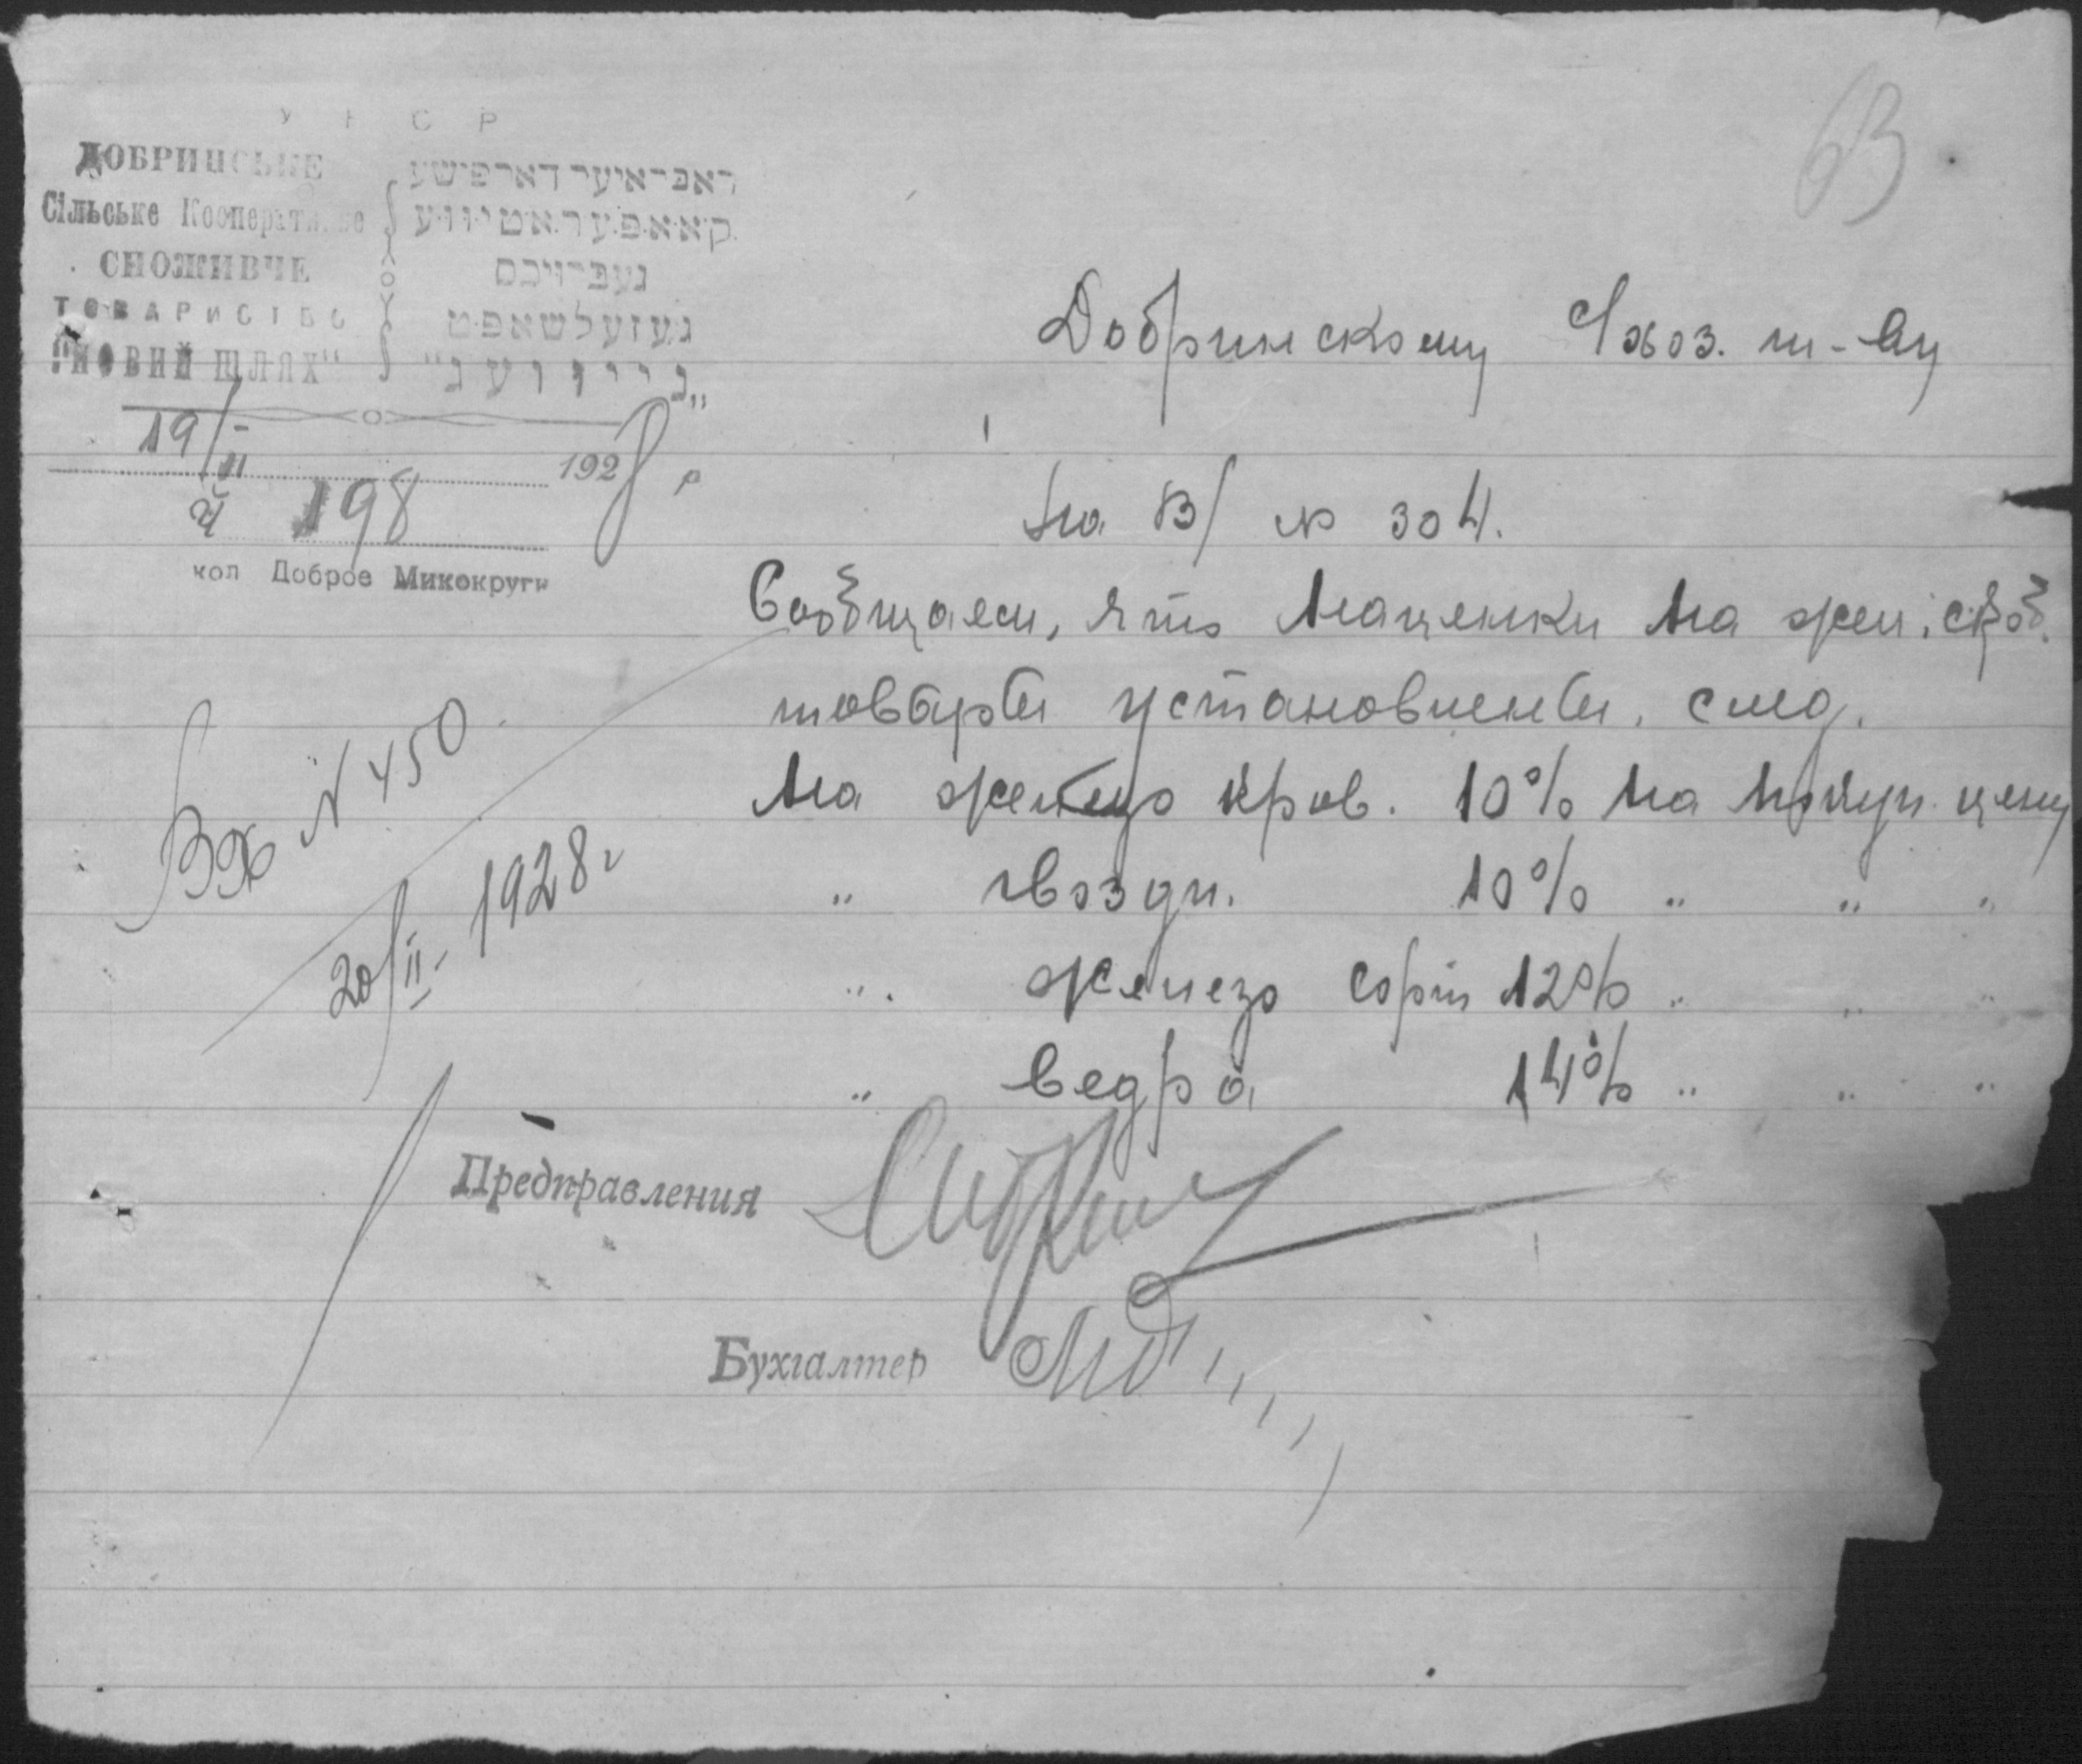 63
У С Р
ДОБРИНСЬКЕ
Сільське Кооперативне
СПОЖИВЧЕ
ТОВАРИСТВО
"НОВИЙ ШЛЯХ"
דארפישע
קאאפעראטיווע
געברויכס
געזעלשאפט
„נייוועג"
19/II 1928 г
№ 198
кол Доброе Микокруги
Добринскому С/хоз. т-ву
На В/ № 304.
Сообщаем, что наценки на жел. скоб.
товары установлены след.
На железо кров. 10% на покуп. цену
" гвозди. 10% " " "
" железо сорт 12% " " "
" ведра 14% " " "
Вх № 450
20/II- 1928 г
Предправления
Бухгалтер